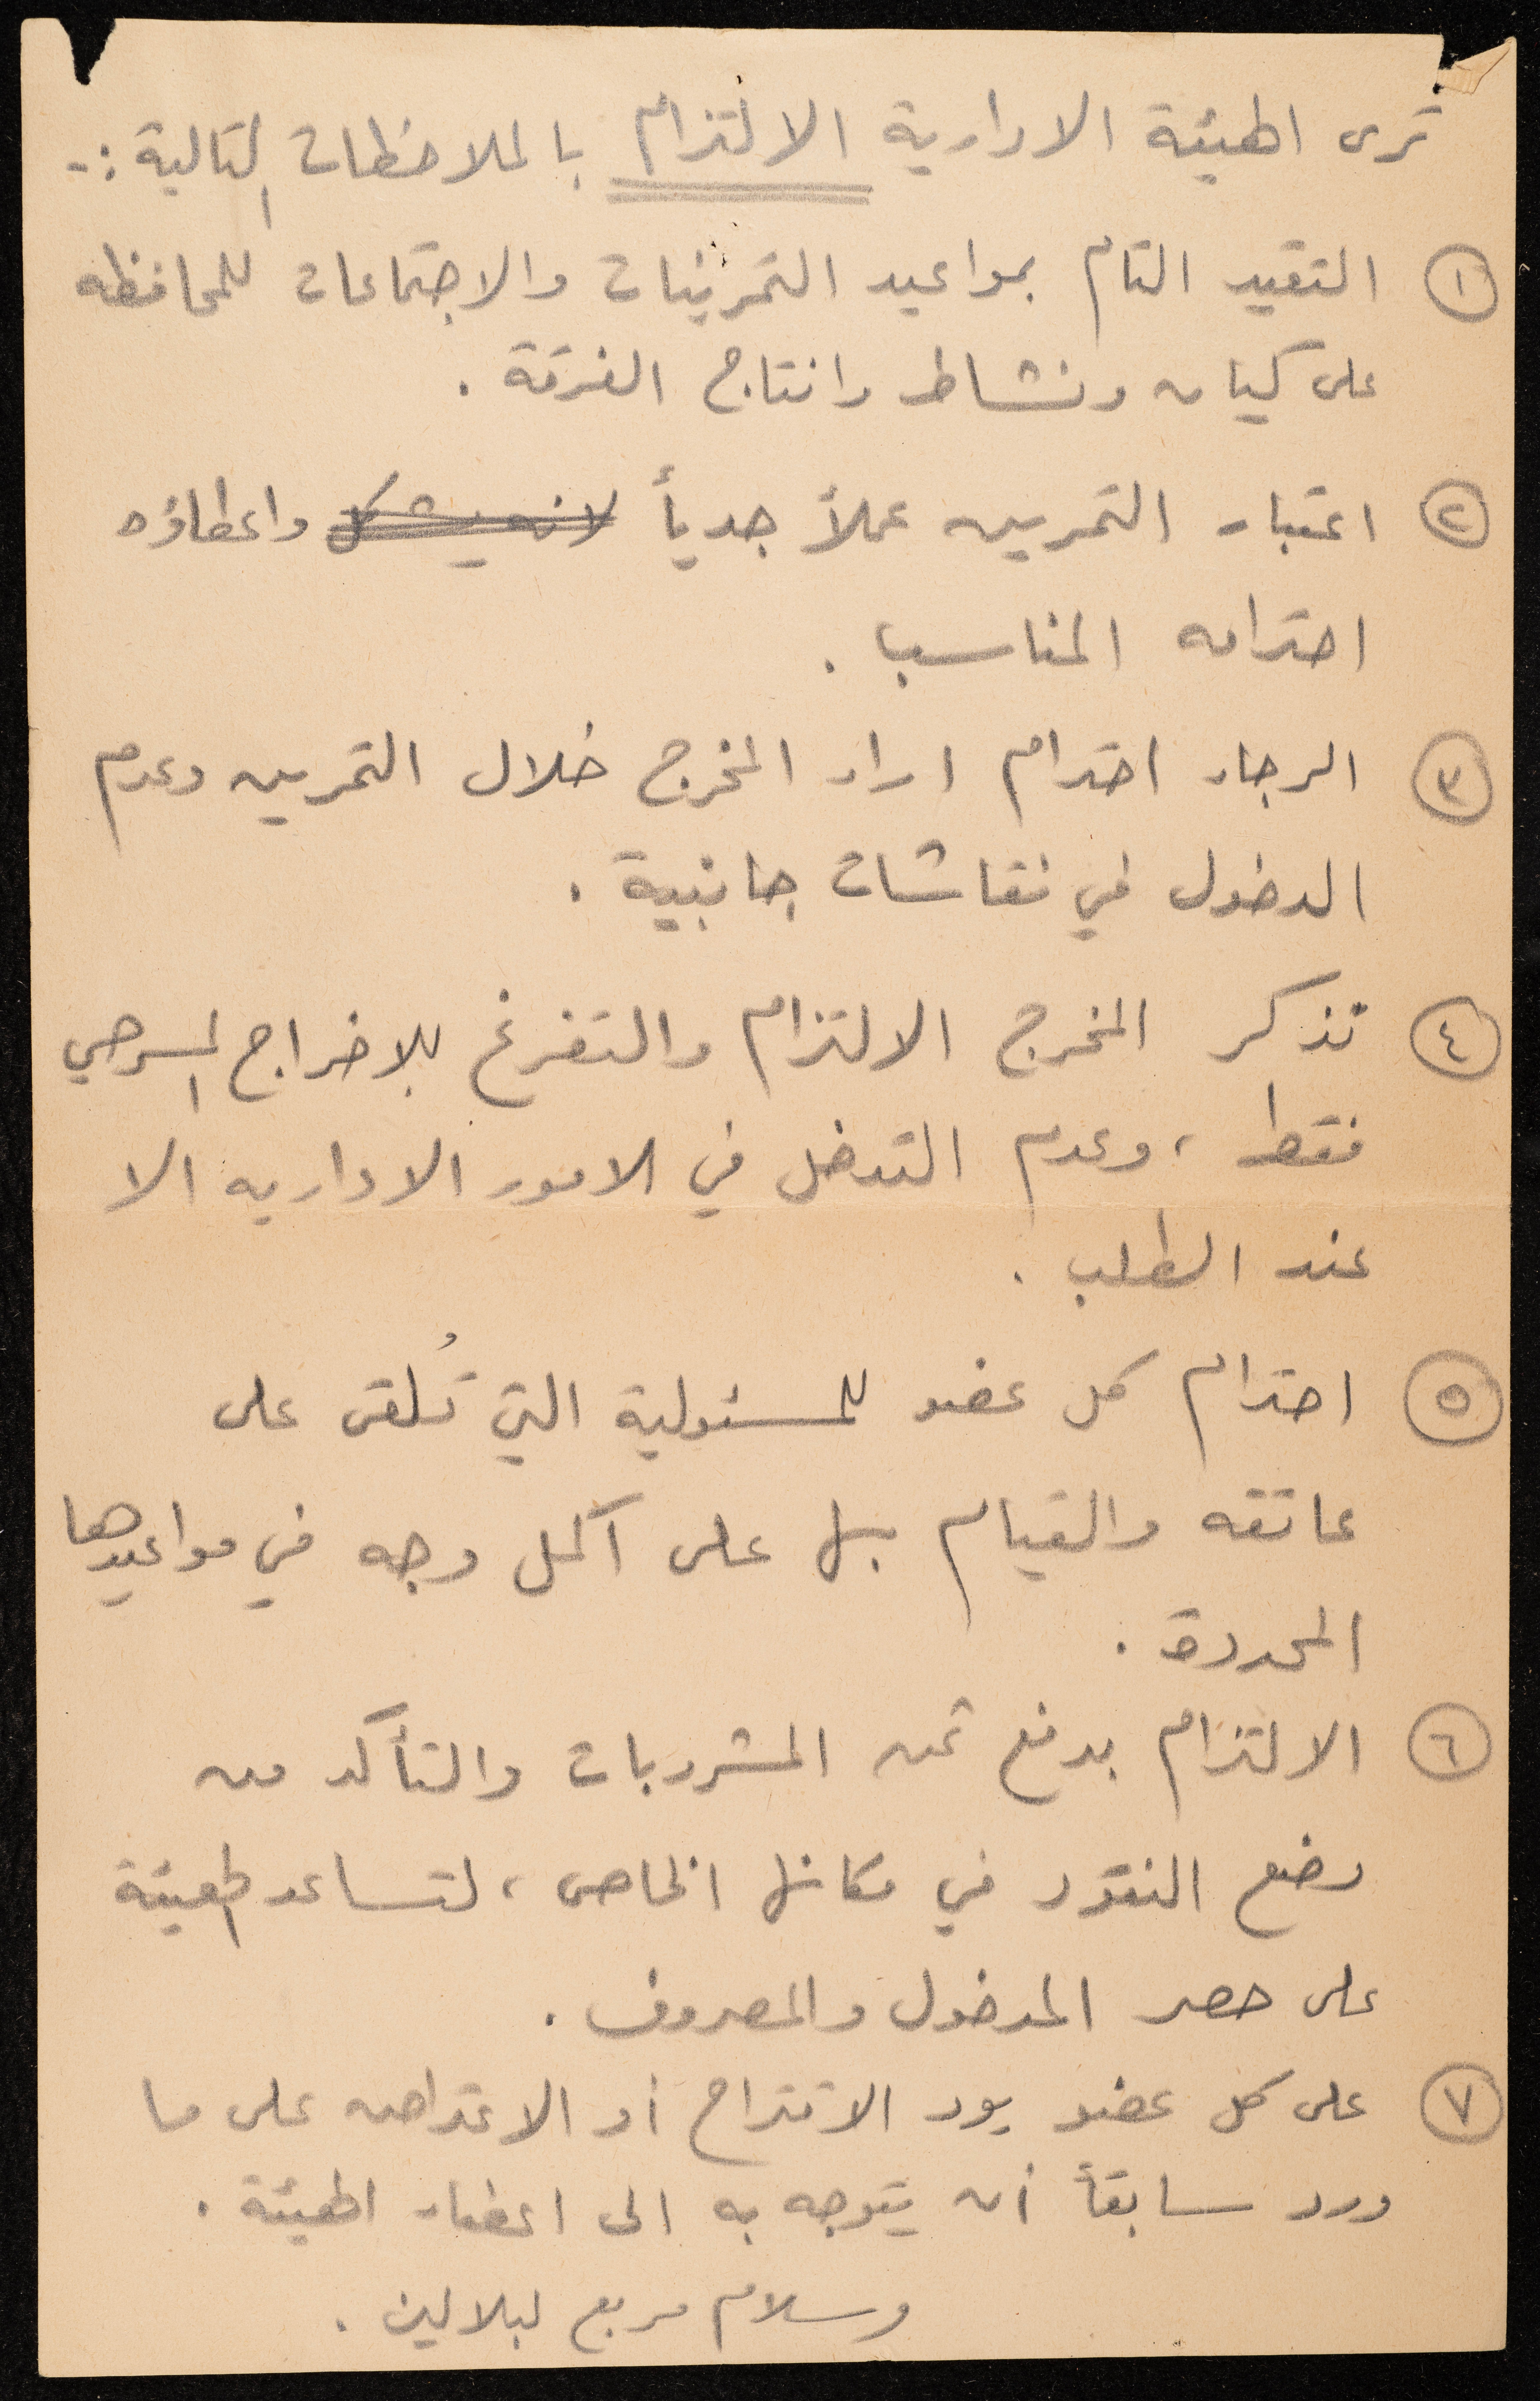 ترى الهيئة الادارية الالتزام بالملاحظات التالية :-
١ التقيد التام بمواعيد التمرينات والاجتماعات للمحافظه
على كيان ونشاط وانتاج الفرقة .
٢ اعتبار التمرين عملاً جدياً لانه يشكل واعطاؤه
احترامه المناسب .
٣ الرجاء احترام اراء المخرج خلال التمرين وعدم
الدخول في نقاشات جانبية .
٤ تذكر المخرج الالتزام والتفرغ للاخراج المسرحي
فقط ، وعدم التدخل في الامور الاداريه الا
عند الطلب .
٥ احترام كل عضو للمسئولية التي تُلقى على
عاتقه والقيام بها على اكمل وجه في مواعيدها
المحددة .
٦ الالتزام بدفع ثمن المشروبات والتأكد من
وضع النقود في مكانها الخاص ، لتساعد الهيئة
على حصر المدخول والمصروف .
٧ على كل عضو يود الاقتراح أو الاعتراض على ما
ورد سابقاً أن يتوجه به الى اعضاء الهيئة .
وسلام مربع لبلالين .